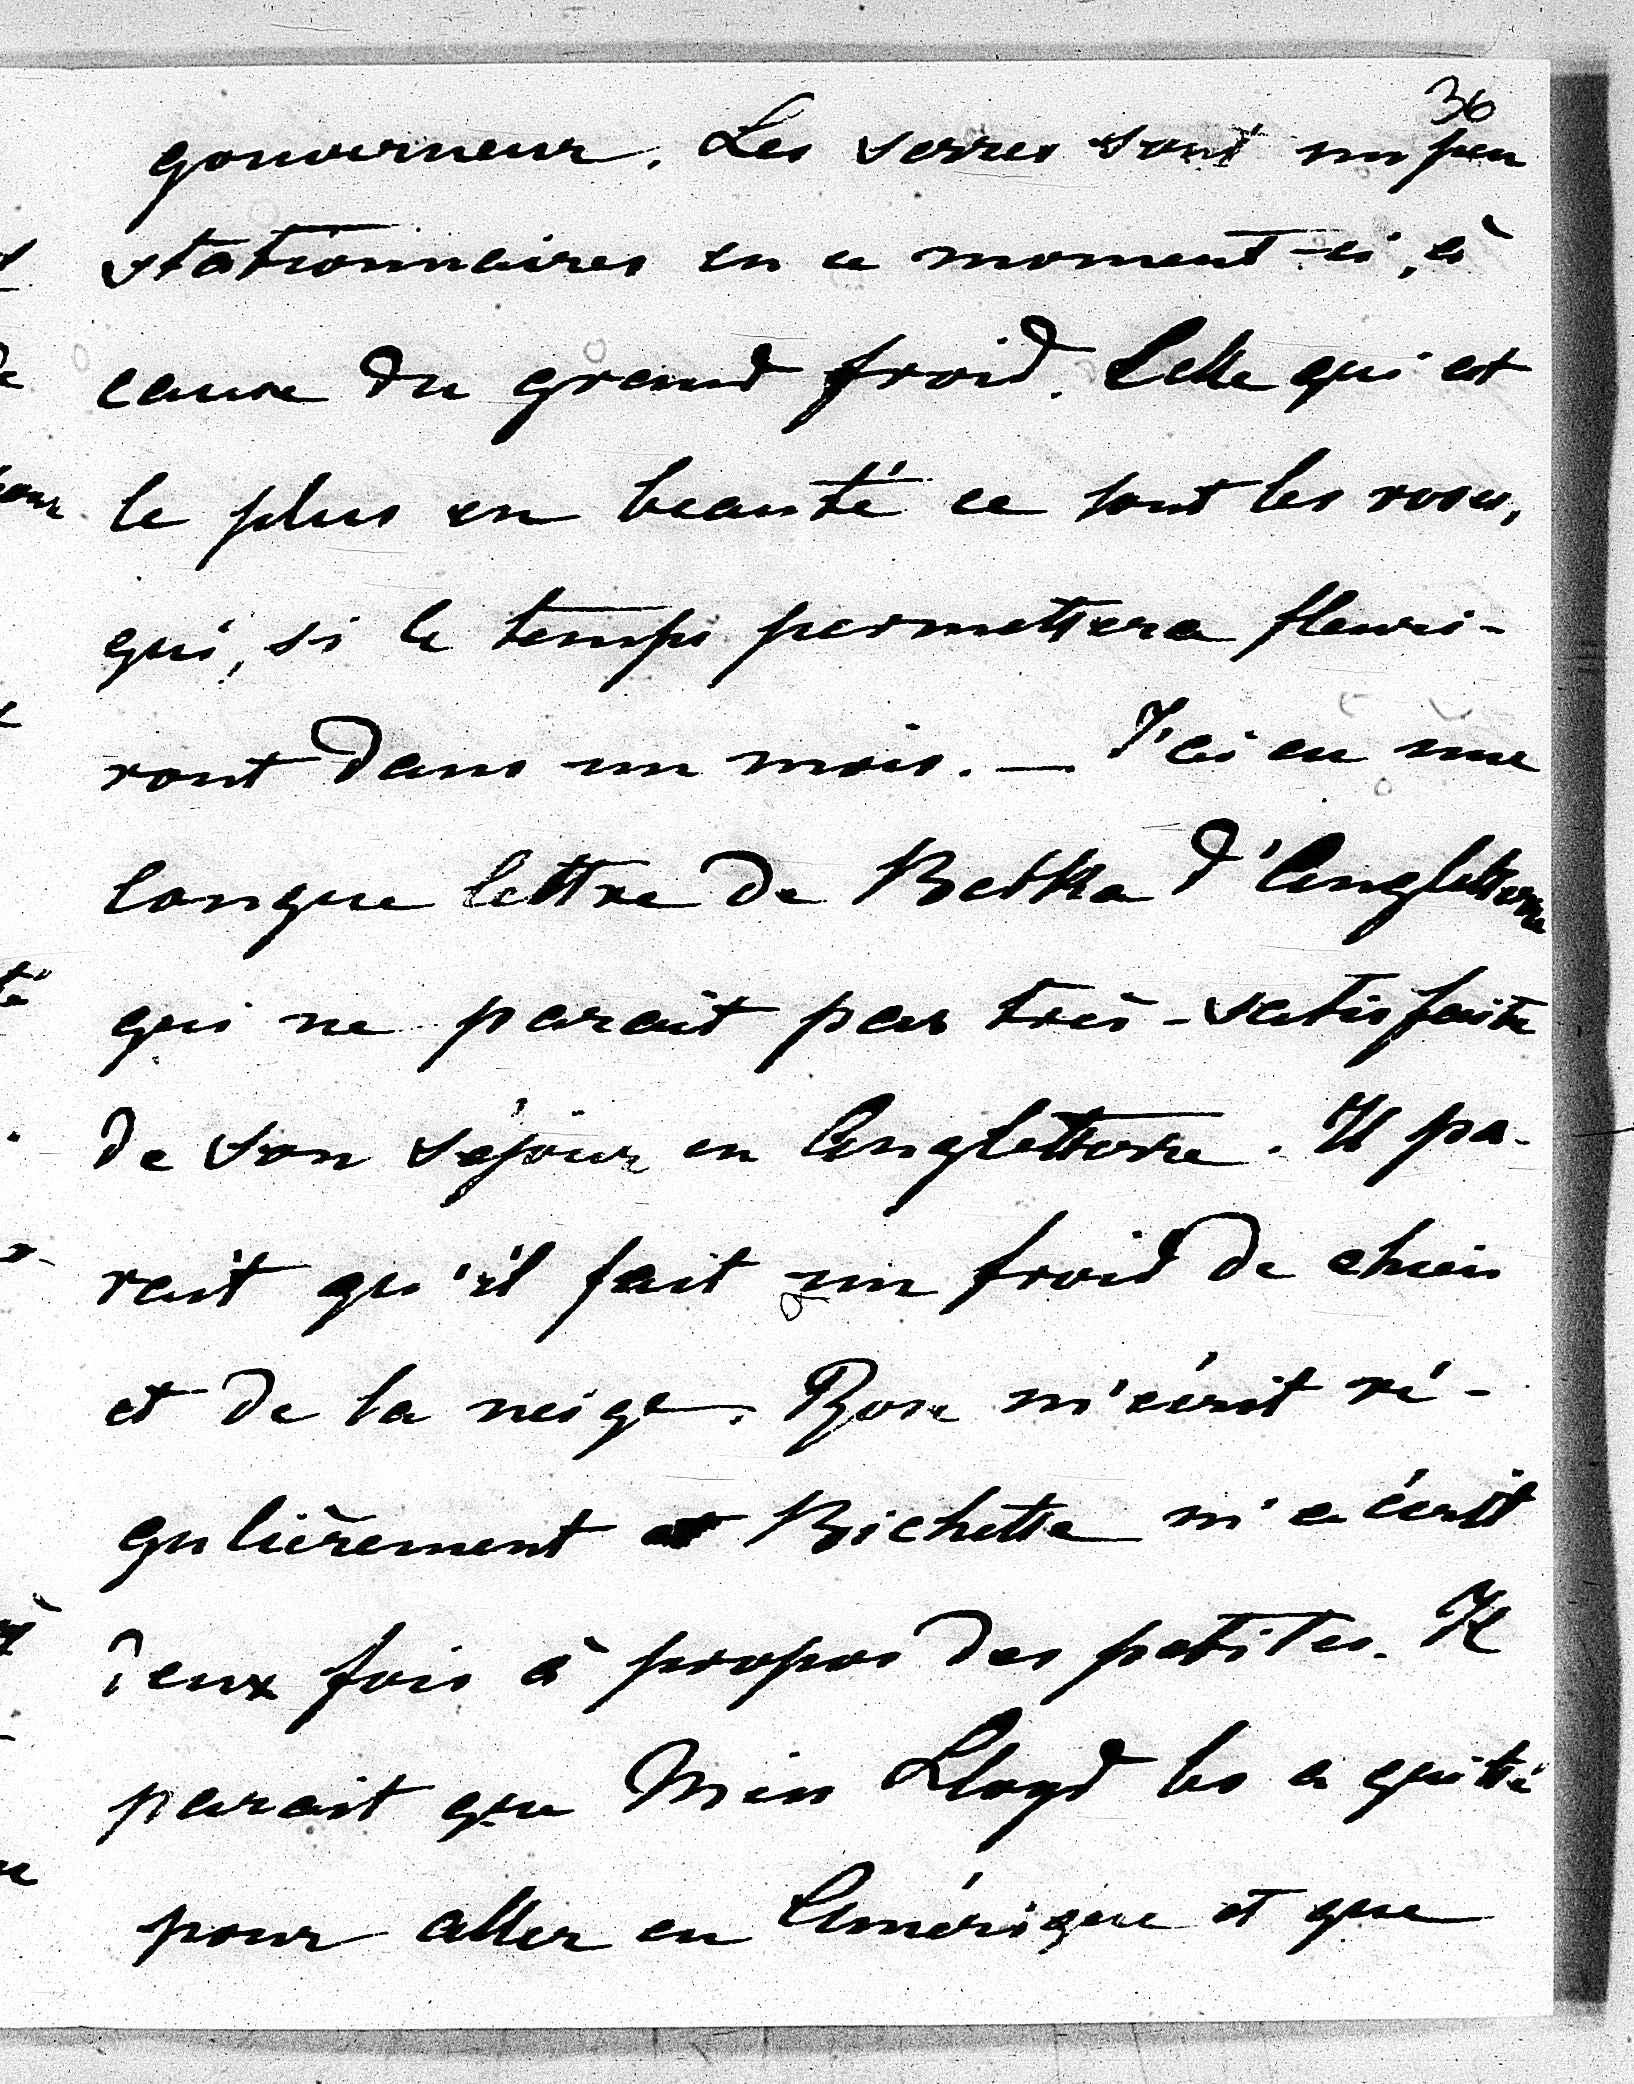 36
gouverneur. Les serres sont un peu
stationnaires en ce moment-ci, à
cause du grand froid. Celle qui est
le plus en beauté ce sont les roses,
qui, si le temps permettera fleuri-
ront dans un mois. — J'ai eu une
longue lettre de Betka d'Angletterre
qui ne parait pas très-satisfaite
de son séjour en Angletterre. Il pa-
rait qu'il fait un froid de chien
et de la neige. Rose m'écrit ré-
gulièrement et Bichette m'a écrit
deux fois à propos des petites. Il
parait que Miss Lloyd les a quitté
pour aller en Amérique et que